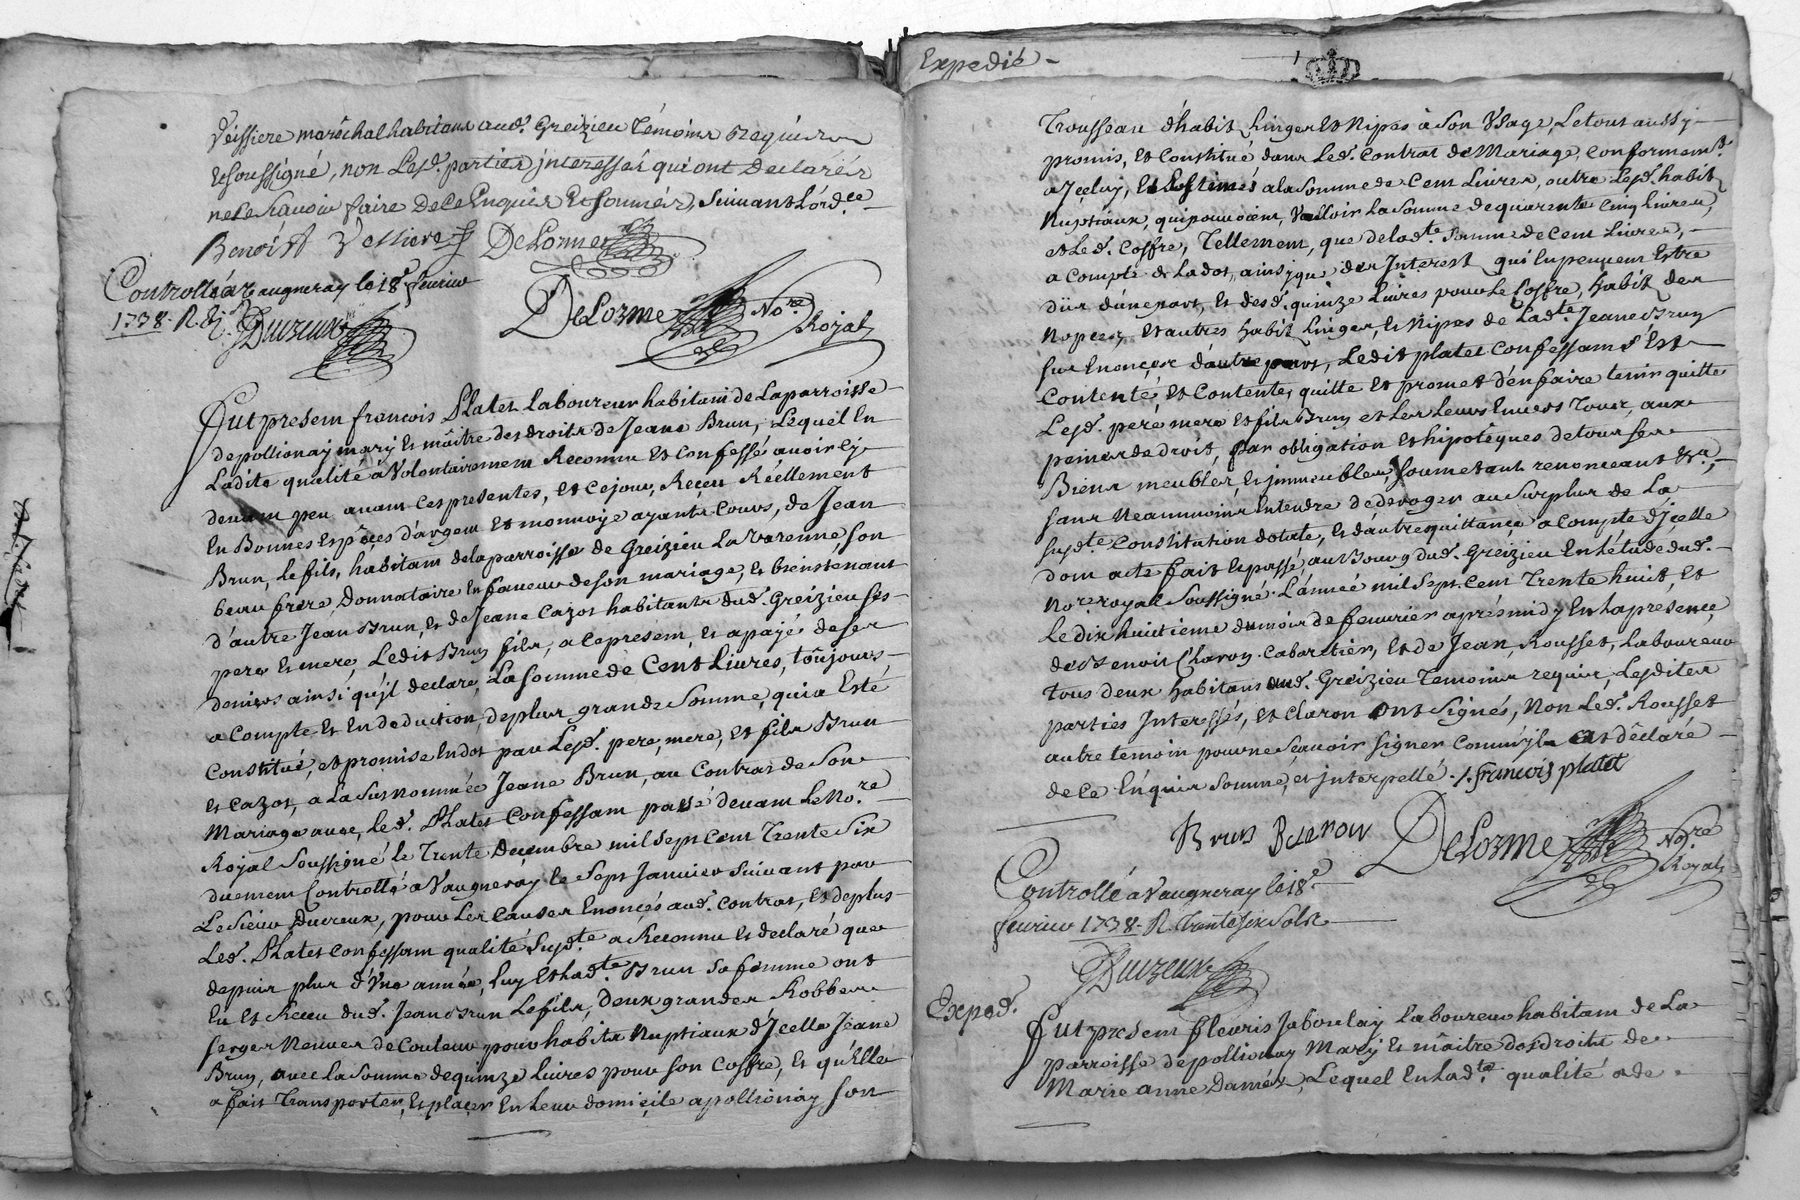 Veissiere maréchal habitans aud. Greizieu Témoins Requis
et soussigné, non Lesd. parties jnteressés qui ont Declarés
ne le scavoir faire de ce Enquis et sommés, suivant L'ord.ce
Benoist Vessiere DeLorme
Controllé a Vaugneray le 18e feurier
1738. R. Duzeux
DeLorme No.re Royal
Fut present francois Platet Laboureur habitant de La parroisse
de pollionay mary et mâitre des droits de Jeane Brun, Lequel En
Ladite qualité à Volontairement Reconnu et confessé auoir cy
deuant peu auant ces presentes, et ce jour, Reçeu Réellement
En Bonnes Espêçes d'argent et monnoye ayants cours, de Jean
Brun, Le fils, habitant de la parroisse de Greizieu La Varenne son
beau frere, Donnataire En faueur de son mariage, et bienstenant
d'autre Jean Brun, et de Jeane Cazot habitants dud. Greizieu ses
pere et mere, Ledit Brun fils, a ce present, et a payé de ses
deniers ainsi qu'jl declare, La somme de Cent Liures, toûjours
a Compte et En deduction, de plus grande somme, qui a Esté
Constitué, et promise En dot par Lesd. pere, mere, et fils Brun
et Cazot, a La susnommée Jeane Brun, au Contrat de son
Mariage auec, Led. Platet Confessant passé deuant Le No.re
Royal soussigné Le Trente Decembre mil sept cent Trente six
duement Controllé a Vaugneray le sept Januier suiuant par
Le sieur Duzeux, pour Les causes Enoncés aud. contrat, et de plus
Led. Platet confessant qualité susd.te a Reconnu et declaré que
depuis plus d'vne année, Luy et Lad.te Brun sa fémme ont
Eu et Receu dud. Jean Brun Le fils, deux grandes Robbes
serges Neuues de Couleur pour habits Nuptiaux d'Jcelle Jeane
Brun, avec La somme de quinze liures pour son Coffre, et qu'Elle
a fait Transporter, et plaçer En Leur domiçile a pollionay son
Expedié
Trousseau d'habit Linges et Nipes à son Vsage, Le tout aussy
promis, et Constitué dans Led. Contrat de Mariage, conformem.t
a Jceluy, et Estimés a la somme de Cent Liures, outre Lesd. habit
Nuptiaux, qui pouuoient, Valloir La somme de quarente Cinq Liures,
et Led. Coffre, Tellement, que de lad.te somme de Cent Liures,
a Compte de La dot, ainsi que des Jnterest qui En peuuent Estre
dûs d'une part, et desd. quinze Liures pour Le Coffre, habit des
Nopces, et autres habit Linges, et Nipes de Lad.te Jeane Brun
sus Enonçes d'autre part, Ledit platet Confessant s'Est
Contenté et Contente, quitte et promet d'en faire tenir quitte
Lesd. pere mere et fils Brun et Les Leurs Enuers Tous, aux
peines de droit, Par obligation et hipotêques de tous ses
Biens meubles, et jmmeubles, soumetant renonceant &a,
sans Neammoins Entendre de deroger au surplus de La
susd.te Constitution dotale, et d'autre quittançe a compte d'Jcelle
dont acte fait et passé, au Bourg dud. Greizieu En L'étude dud.
No.re royal soussigné. L'année mil sept cent Trente huit, et
Le dix huitieme du mois de feurier aprés midy En La presençe
de Benoit Charon Cabartier, et de Jean, Rousset, Laboureur
tous deux habitans aud. Greizieu Temoins requis, Lesdites
parties Jnteressés, et Claron ont signés, Non Led. Rousset
autre temoin pour ne sçauoir signer comm'jl a dêclaré
de ce Enquis sommé, et jnterpellé. francois platet
Brun Benoit DeLorme No.re Royal
Controllé a Vaugneray le 18e
feurier 1738. R. Trente six sols
Duzeux
Exped.
Fut present fleuris Jaboulay Laboureur habitant de La
parroisse de pollionay Mary et mâitre des droits de
Marie anne Damés, Lequel En Lad.te qualité a de